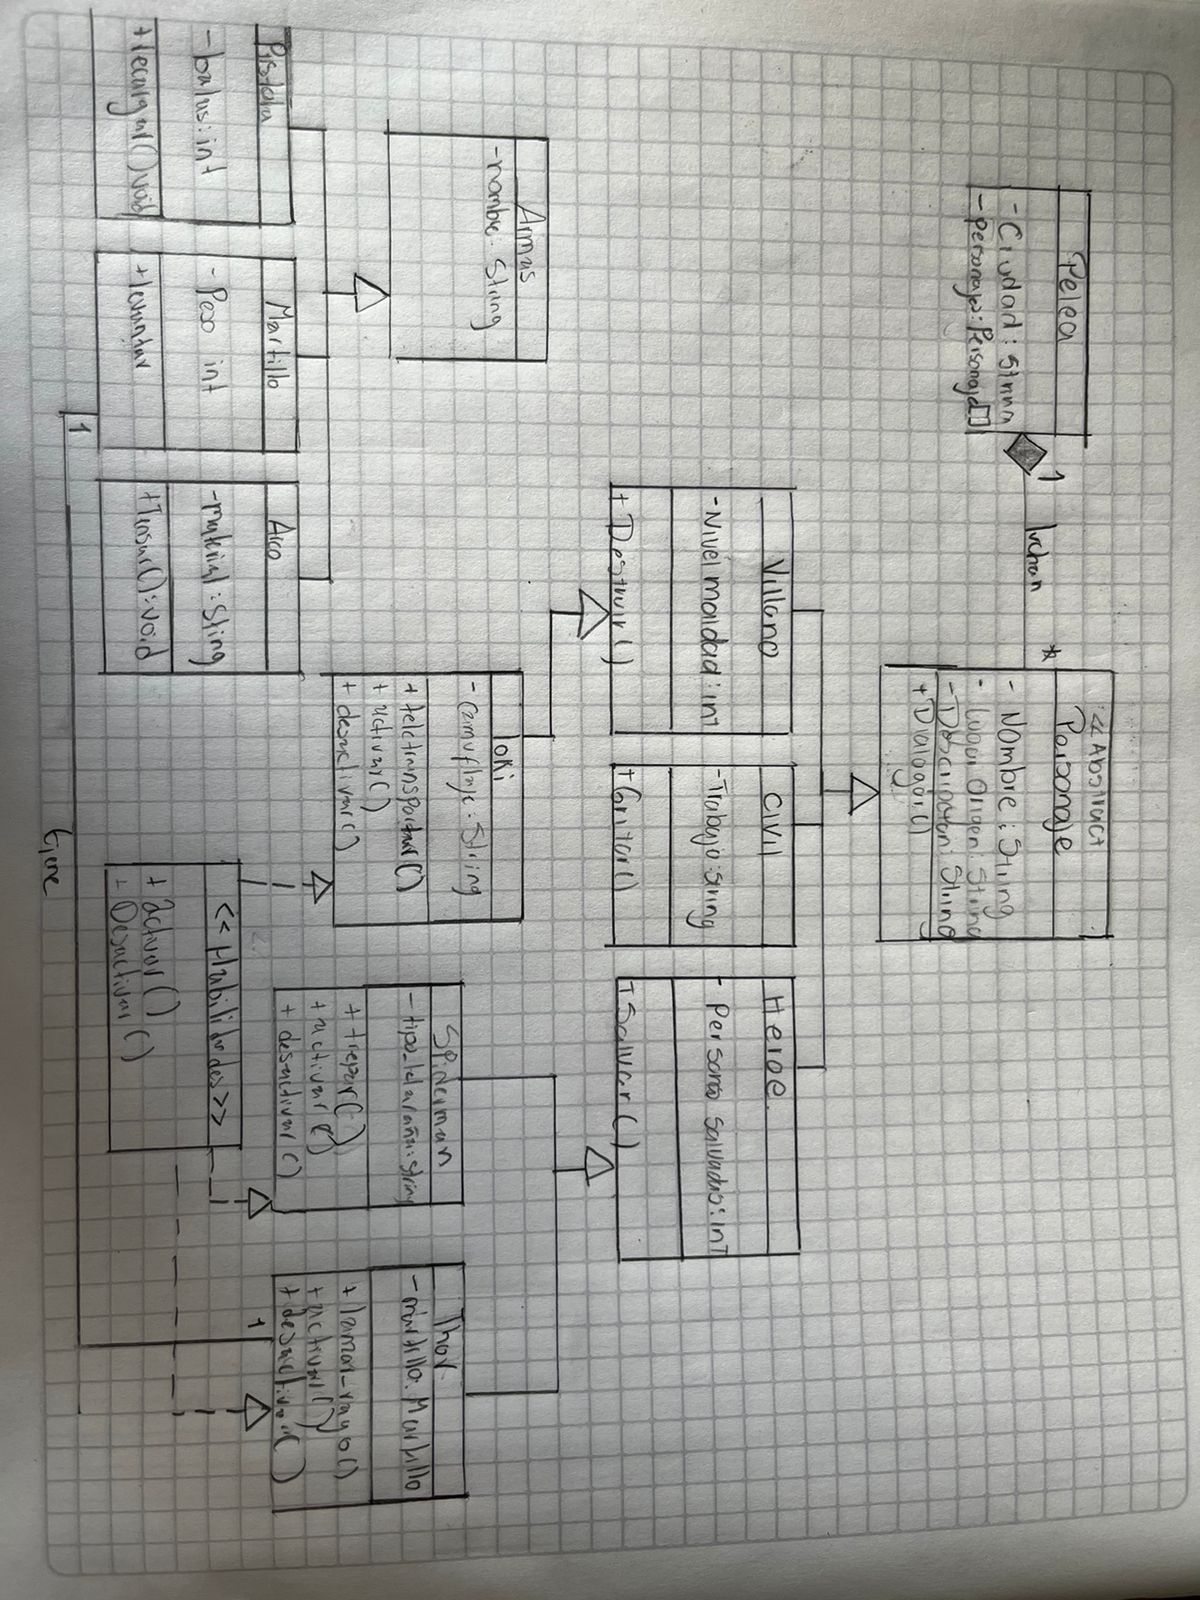 Pelea
- Ciudad: String
- personajes: Personaje[]
1 luchan *
<< Abstract
Personaje
- Nombre: String
- Lugar Origen: String
- Descripcion: String
+ Dialogar()
Villano
- Nivel maldad: int
+ Destruir()
Civil
- Trabajo: String
+ Gritar()
Heroe
- Personas salvadas: inT
+ Salvar()
Armas
- nombre: String
loki
- camuflaje: String
+ teletransportar()
+ activar()
+ desactivar()
Spiderman
- tipo_telaraña: String
+ trepar()
+ activar()
+ desactivar()
Thor
- martillo: Martillo
+ lanzar_rayo()
+ activar()
+ desactivar()
1
Pistola
- balas: int
+ recargar() void
Martillo
- Peso int
+ levantar
Arco
- material: Sting
+ Tensar(): void
<< Habilidades >>
+ activar()
- Desactivar()
1
tiene